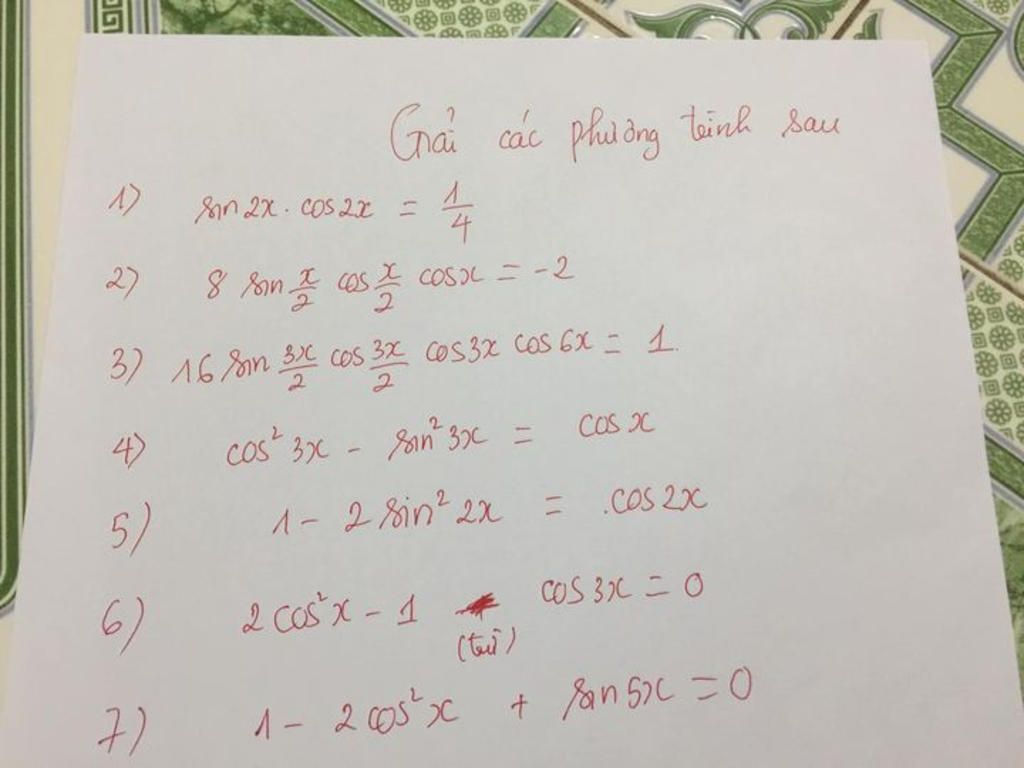 Giải các phương trình sau
1) sin2x . cos2x = 1/4
2) 8 sin x/2 cos x/2 cosx = -2
3) 16 sin 3x/2 cos 3x/2 cos3x cos6x = 1
4) cos² 3x - sin² 3x = cos x
5) 1 - 2 sin² 2x = cos2x
6) 2 cos²x - 1 cos 3x = 0
(trừ)
7) 1 - 2cos²x + sin5x = 0